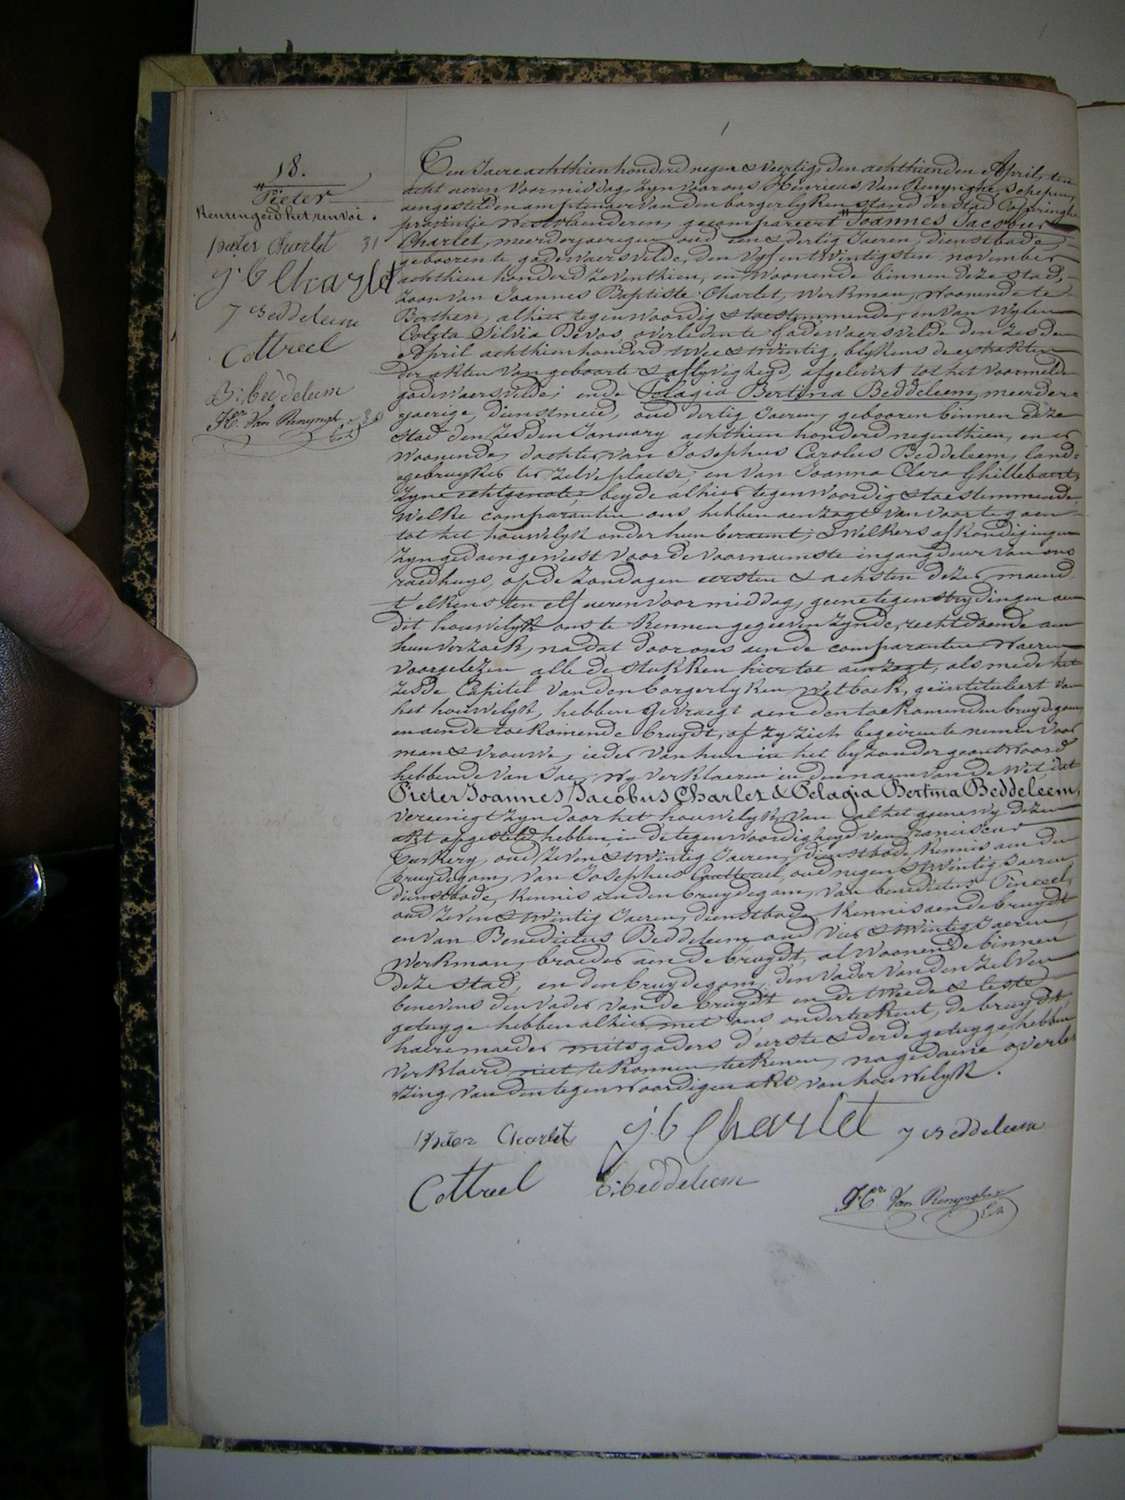 18.
Pieter
Keuren goed het renvoi.
pieter Charlet 31
J: b Charlet
J Beddeleem
Cottreel
B: beddeleem
H.er Van Renynghe
Ten Jaere achthien honderd negen & veertig, den achthienden April, ten
acht ueren voormiddag, zyn voor ons Henricus Van Renynghe, Schepenen,
aengestelden amptenaer van den borgerlyken stand der Stad Poperinghe
provintie Westvlaenderen, gecompareert Joannes Jacobus
Charlet, meerderjaerigen, oud een & dertig Jaeren, dienstbode,
gebooren te godewaersvelde, den vyf en twintigsten november
achthien honderd zeventhien, en woonende binnen deze stad,
zoon van Joannes Baptiste Charlet, werkman, woonende te
Berthen, alhier tegenwoordig & toestemmende, en van wylen
Coleta Silvia Devos, overleden te godewaersvelde den zesden
April achthien honderd twee & twintig, blykens de extrakten
der akten van geboorte & aflyvigheyd, afgelevert tot het voormelde
godewaersvelde; ende Pelagia Bertina Beddeleem, meerder-
jaerige, dienstmeid, oud dertig Jaeren, gebooren binnen deze
stad den zesden January achthien honderd negenthien, en er
woonende, dochter van Josephus Carolus Beddeleem, land-
gebruyker ter zelve plaetse, en van Joanna Clara Ghillebaert,
zyne echtgenote, beyde alhier tegenwoordig & toestemmende,
Welke comparanten ons hebben aenzogt van voorte gaen
tot het houwelyk onder hun beraemt, & welkers afkondigingen
zyn gedaen geweest voor de voornaemste ingangdeur van ons
raedhuys, op de zondagen eersten & achsten dezer maend
t'elkens ten elf ueren voormiddag, geene tegenstrydingen aen
dit houwelyk ons te kennen gegeeven zynde, rechtdoende aen
hun verzoek, nadat door ons aen de comparanten waeren
voorgelezen alle de stukken hier toe aenzogt, als mede het
zesde Capitel van den borgerlyken wetboek, geïntituleert van
het houwelyk, hebben gevraegt aen den toekomenden bruydegom
en aen de toekomende bruydt, of zy zich begeiren te nemen voor
man & vrouwe, ieder van hun in het byzonder geantwoord
hebbende van Jae, wy verklaeren in den naem van de wet, dat
Pieter Joannes Jacobus Charlet & Pelagia Bertina Beddeleem,
vereenigt zyn door het houwelyk, van al het gonne wy dezen
akt opgesteld hebben, in de tegenwoordigheyd van franciscus
oud zeven & twintig Jaeren, dienstbode, kennis aen den
bruydegom, van Josephus Cottreel, oud negen & twintig Jaeren,
dienstbode, kennis aen den bruydegom, van benedictus
oud zeven & twintig Jaeren, dienstbode, kennis aen de bruydt
en van Benedictus Beddeleem, oud vier & twintig Jaeren,
werkman, broeder aen de bruydt, al woonende binnen
deze stad, en den bruydegom, den vader van den zelven
benevens den vader van de bruydt en de tweede & leste
getuyge hebben alhier met ons onderteekent, de bruydt,
haere moeder mitsgaders d'eerste & derde getuyge, hebben
verklaerd niet te konnen teekenen, na gedaene overle-
zing van den tegenwoordigen akt van houwelyk.
pieter Charlet J: b Charlet J Beddeleem
Cottreel B: beddeleem H.er Van Renynghe